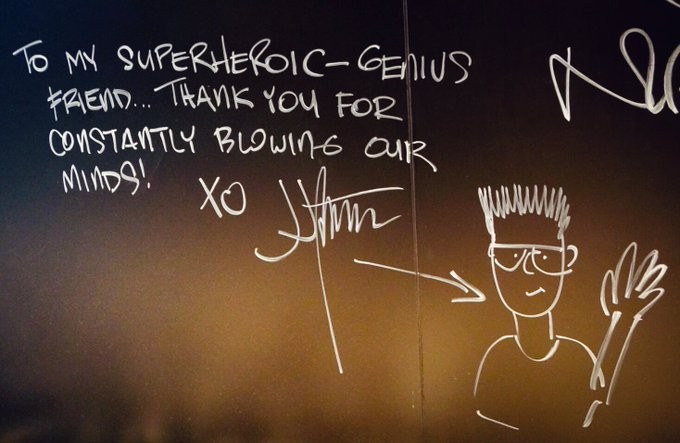 TO MY SUPERHEROIC-GENIUS
FRIEND... THANK YOU FOR
CONSTANTLY BLOWING OUR
MINDS!
XO